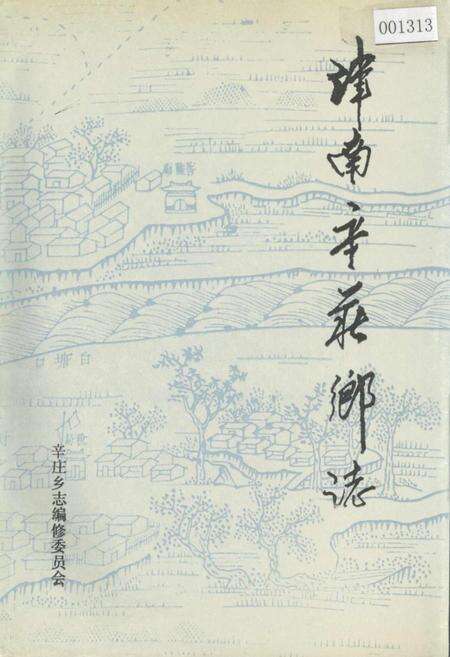 001313
津南辛莊鄉誌
辛庄乡志编修委员会
白塘口